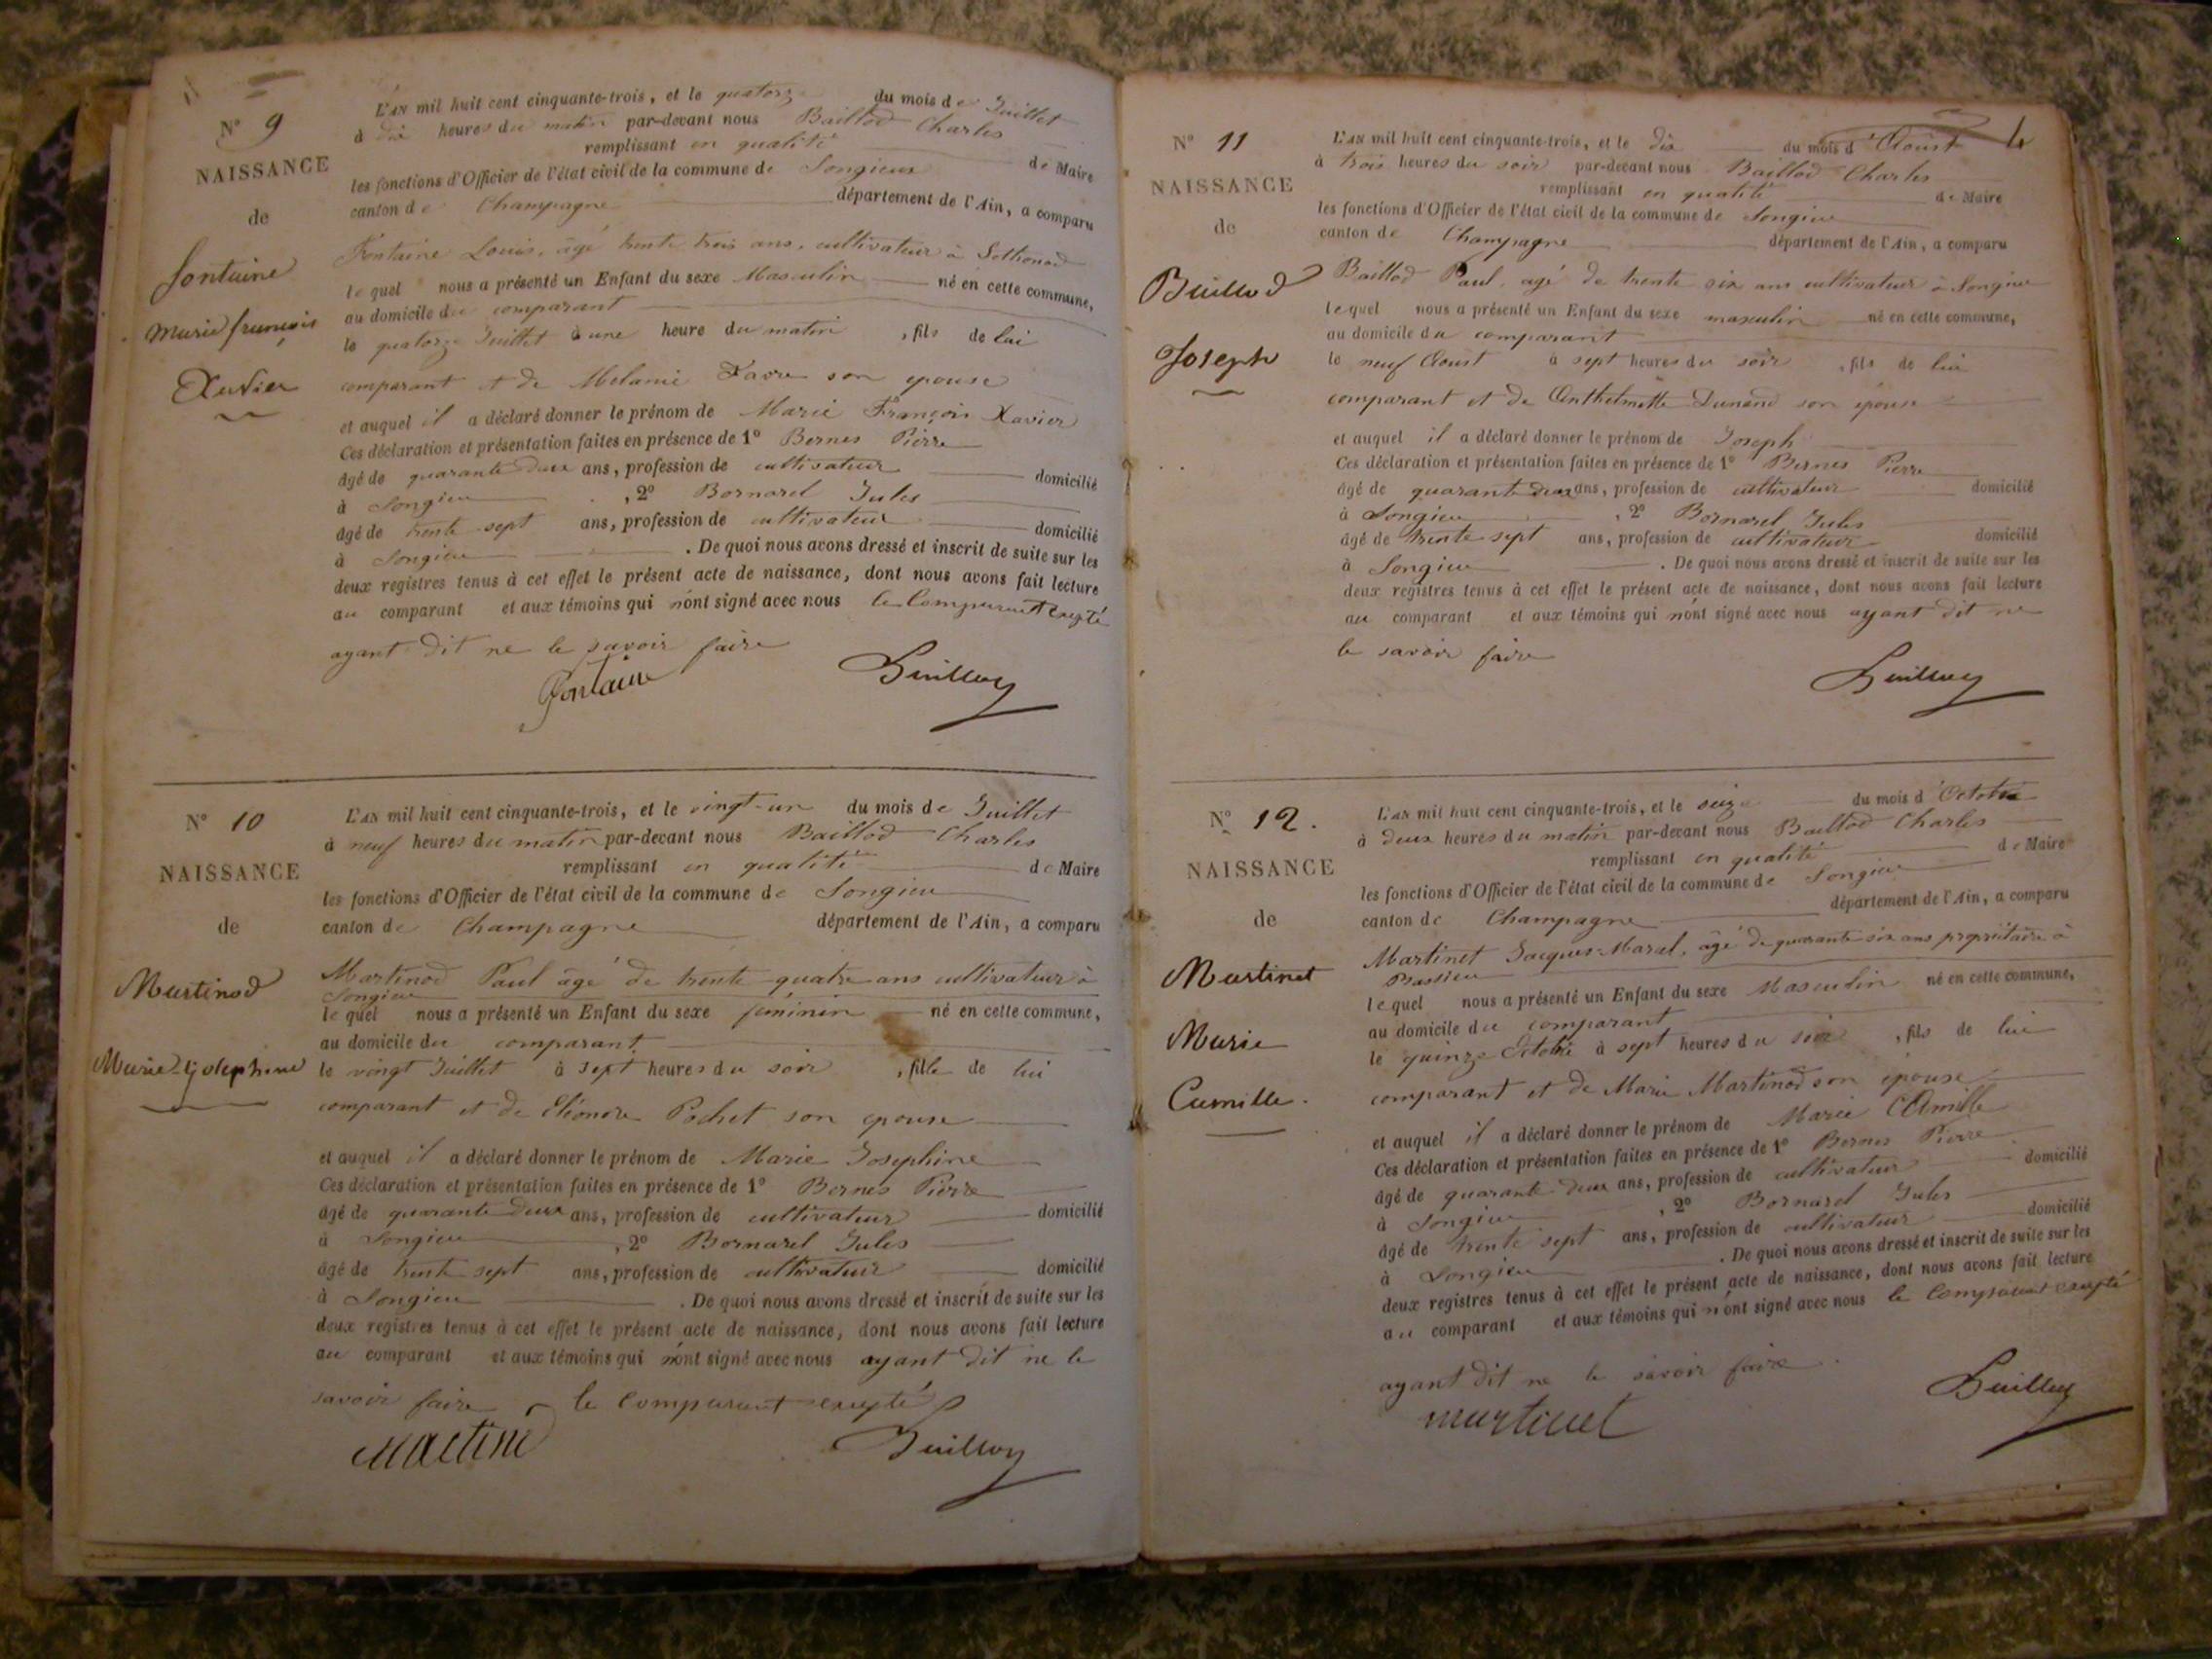 N° 9
NAISSANCE
de
fontaine
Marie françois
Xavier
L'AN mil huit cent cinquante-trois, et le quatorze du mois de Juillet
à dix heures du matin par-devant nous Baillod Charles
remplissant en qualité de Maire
les fonctions d'Officier de l'état civil de la commune de Songieu
canton de Champagne département de l'Ain, a comparu
Fontaine Louis, âgé trente trois ans, cultivateur à Sothonod
lequel nous a présenté un Enfant du sexe Masculin né en cette commune,
au domicile du comparant
le quatorze Juillet à une heure du matin, fils de lui
comparant et de Melanie Favre son epouse
et auquel il a déclaré donner le prénom de Marie François Xavier
Ces déclaration et présentation faites en présence de 1° Bernes Pierre
âgé de quarante deux ans, profession de cultivateur domicilié
à Songieu, 2° Bornarel Jules
âgé de trente sept ans, profession de cultivateur domicilié
à Songieu. De quoi nous avons dressé et inscrit de suite sur les
deux registres tenus à cet effet le présent acte de naissance, dont nous avons fait lecture
au comparant et aux témoins qui n'ont signé avec nous le Comparant exepté
ayant dit ne le savoir faire
Fontaine Baillod
N° 10
NAISSANCE
de
Martinod
Marie-Josephine
L'AN mil huit cent cinquante-trois, et le vingt-un du mois de Juillet
à neuf heures du matin par-devant nous Baillod Charles
remplissant en qualité de Maire
les fonctions d'Officier de l'état civil de la commune de Songieu
canton de Champagne département de l'Ain, a comparu
Martinod Paul âgé de trente quatre ans cultivateur à
Songieu
lequel nous a présenté un Enfant du sexe féminin né en cette commune,
au domicile du comparant
le vingt Juillet à sept heures du soir, fille de lui
comparant et de Eléonore Pochet son epouse
et auquel il a déclaré donner le prénom de Marie Josephine
Ces déclaration et présentation faites en présence de 1° Bernes Pierre
âgé de quarante deux ans, profession de cultivateur domicilié
à Songieu, 2° Bornarel Jules
âgé de trente sept ans, profession de cultivateur domicilié
à Songieu. De quoi nous avons dressé et inscrit de suite sur les
deux registres tenus à cet effet le présent acte de naissance, dont nous avons fait lecture
au comparant et aux témoins qui n'ont signé avec nous ayant dit ne le
savoir faire le Comparant exepté
Martinod Baillod
4
N° 11
NAISSANCE
de
Baillod
Joseph
L'AN mil huit cent cinquante-trois, et le dix du mois d'Aoust
à trois heures du soir par-devant nous Baillod Charles
remplissant en qualité de Maire
les fonctions d'Officier de l'état civil de la commune de Songieu
canton de Champagne département de l'Ain, a comparu
Baillod Paul, agé de trente six ans cultivateur à Songieu
lequel nous a présenté un Enfant du sexe masculin né en cette commune,
au domicile du comparant
le neuf Aoust à sept heures du soir, fils de lui
comparant et de Anthelmette Dunand son épouse
et auquel il a déclaré donner le prénom de Joseph
Ces déclaration et présentation faites en présence de 1° Bernes Pierre
âgé de quarante deux ans, profession de cultivateur domicilié
à Songieu, 2° Bornarel Jules
âgé de trente sept ans, profession de cultivateur domicilié
à Songieu. De quoi nous avons dressé et inscrit de suite sur les
deux registres tenus à cet effet le présent acte de naissance, dont nous avons fait lecture
au comparant et aux témoins qui n'ont signé avec nous ayant dit ne
le savoir faire
Baillod
N° 12.
NAISSANCE
de
Martinet
Marie
Camille.
L'AN mil huit cent cinquante-trois, et le seize du mois d'Octobre
à deux heures du matin par-devant nous Baillod Charles
remplissant en qualité de Maire
les fonctions d'Officier de l'état civil de la commune de Songieu
canton de Champagne département de l'Ain, a comparu
Martinet Jacques-Marcel, âgé de quarante six ans propriétaire à
Bassieu
lequel nous a présenté un Enfant du sexe Masculin né en cette commune,
au domicile du comparant
le quinze Octobre à sept heures du soir, fils de lui
comparant et de Marie Martinod son épouse
et auquel il a déclaré donner le prénom de Marie Camille
Ces déclaration et présentation faites en présence de 1° Bernes Pierre
âgé de quarante deux ans, profession de cultivateur domicilié
à Songieu, 2° Bornarel Jules
âgé de trente sept ans, profession de cultivateur domicilié
à Songieu. De quoi nous avons dressé et inscrit de suite sur les
deux registres tenus à cet effet le présent acte de naissance, dont nous avons fait lecture
au comparant et aux témoins qui n'ont signé avec nous le Comparant exepté
ayant dit ne le savoir faire.
martinet Baillod